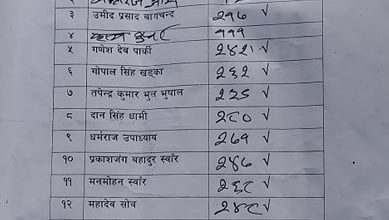 ३ उमीद प्रसाद बागचन्द २९७ √
४ १११
५ गणेश देव पार्की २४२१ √
६ गोपाल सिंह खड्का २६२ √
७ तपेन्द्र कुमार भुल भुषाल २२५ √
८ दान सिंह धामी २८० √
९ धर्मराज उपाध्याय २६१ √
१० प्रकाशजंग बहादुर स्वाँर २४६ √
११ मनमोहन स्वाँर २६८ √
१२ महादेव सोव २४८ √